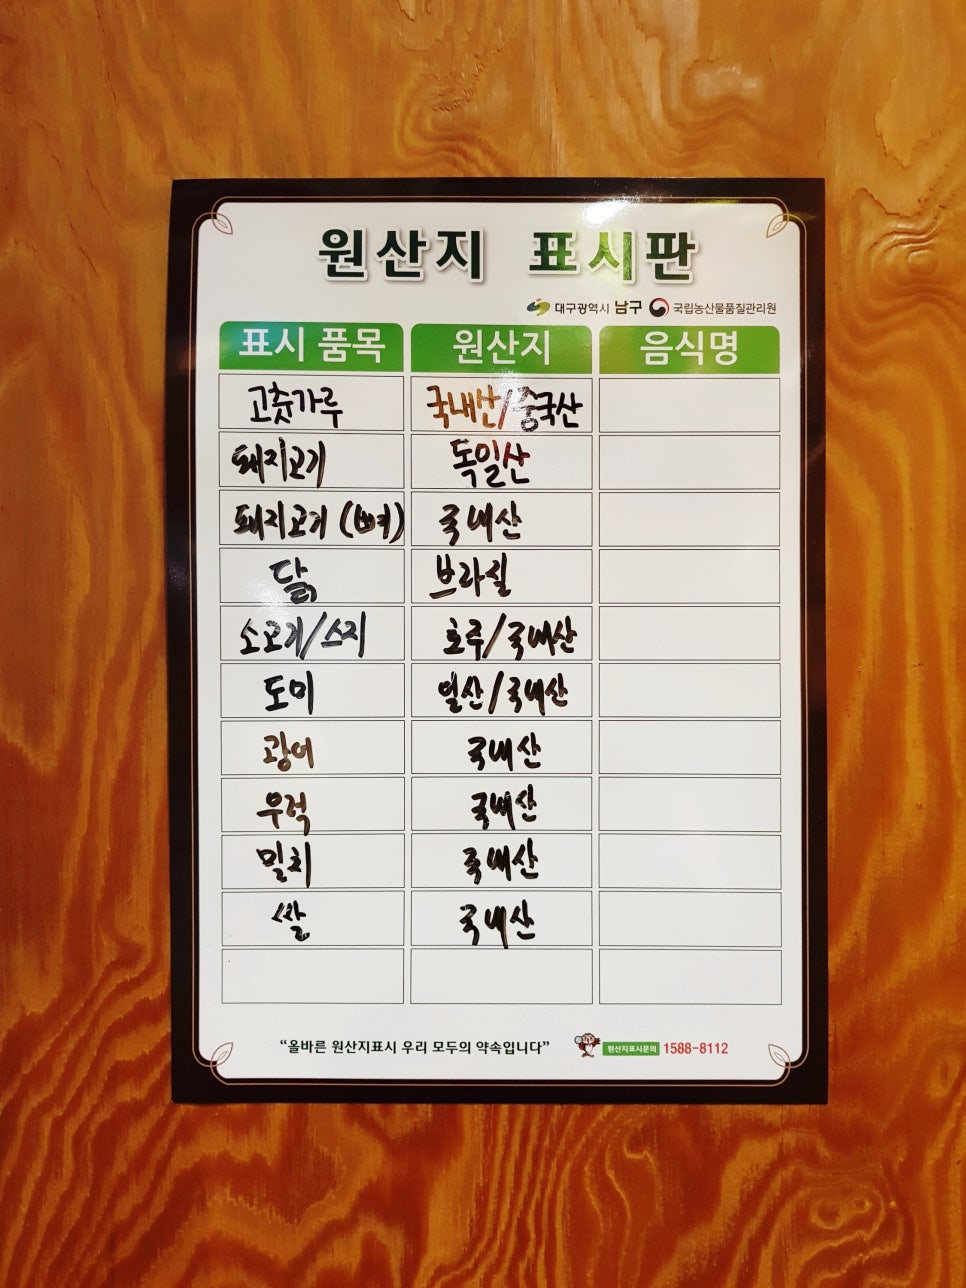 원산지 표시판
대구광역시 남구 국립농산물품질관리원
표시 품목 원산지 음식명
고춧가루 국내산/중국산
돼지고기 독일산
돼지고기 (뼈) 국내산
닭 브라질
소고기/스지 호주/국내산
도미 일산/국내산
광어 국내산
우럭 국내산
밀치 국내산
쌀 국내산
“올바른 원산지표시 우리 모두의 약속입니다” 원산지표시문의 1588-8112